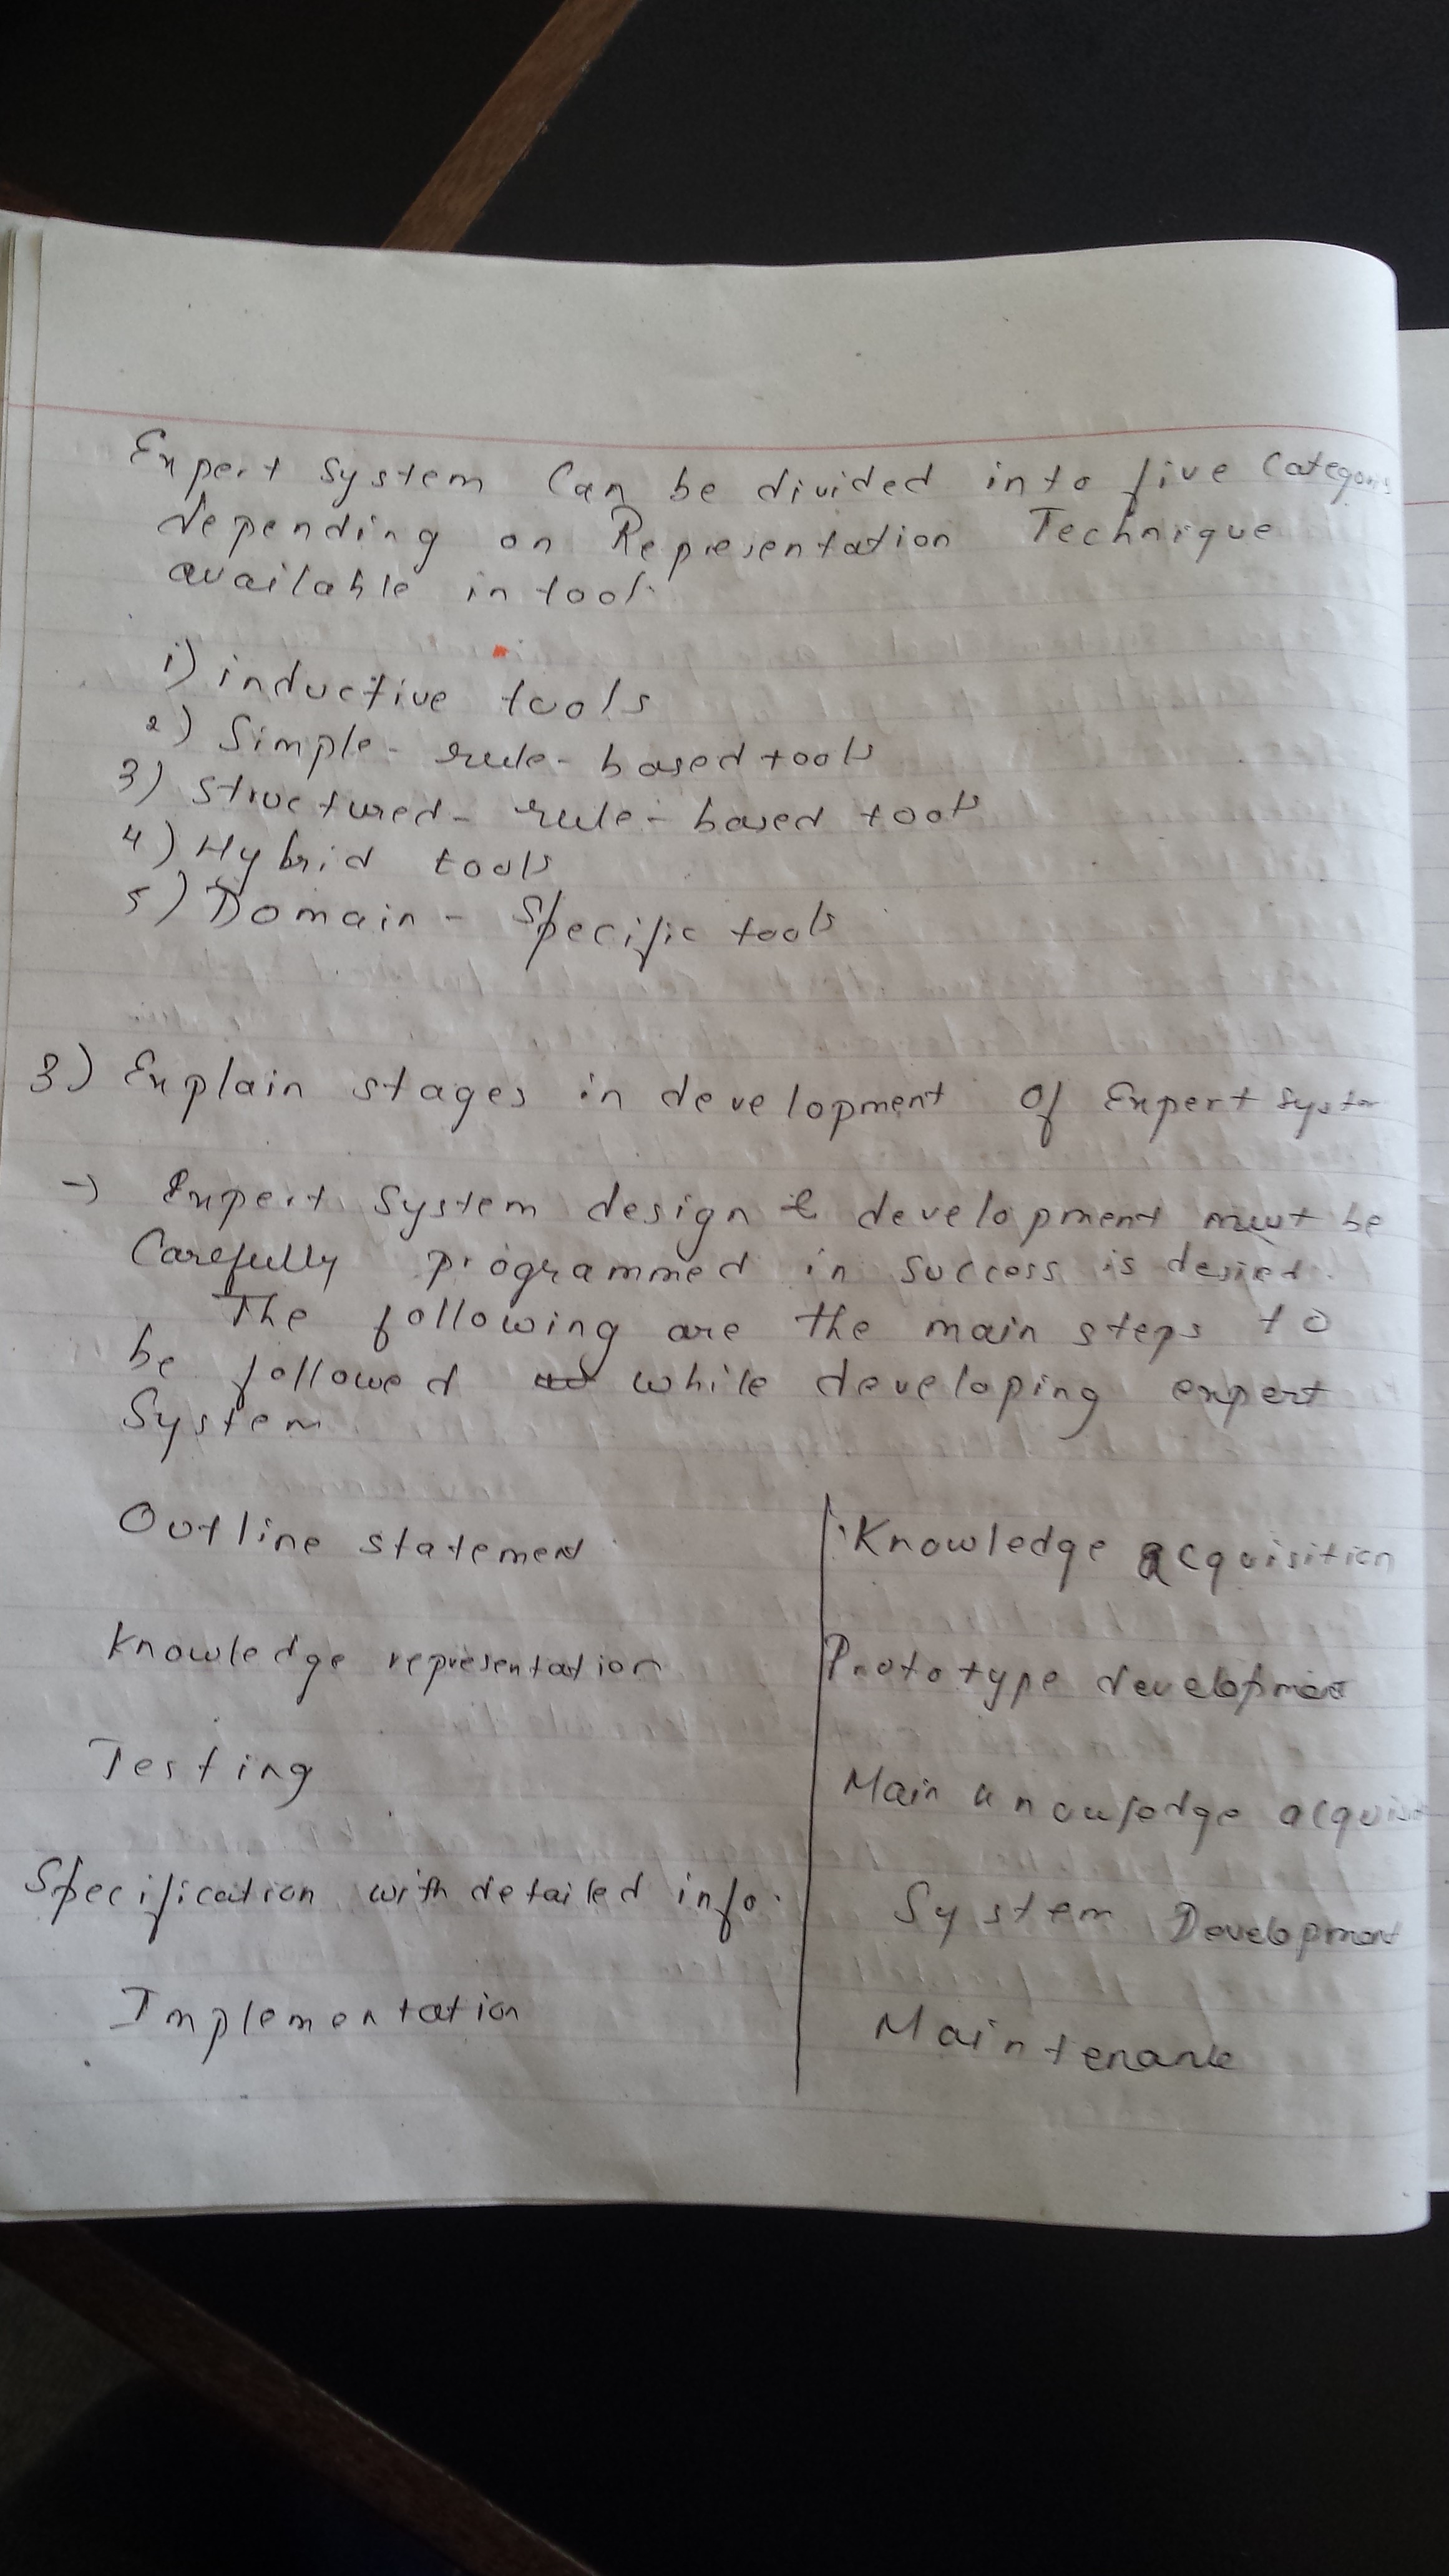 Expert system Can be divided into five Categoris
depending on Representation Technique
available in tool.
i) inductive tools
2) Simple- rule- based tools
3) structured- rule- based tools
4) Hybrid tools
5) Domain - Specific tools
3) Explain stages in development of Expert system
→ Expert system design & development must be
Carefully programmed in success is desired.
The following are the main steps to
be followed while developing expert
System
Outline statement
Knowledge acquisition
Knowledge representation
Prototype development
Testing
Main knowledge acquisit
Specification with detailed info.
System Development
Implementation
Maintenance